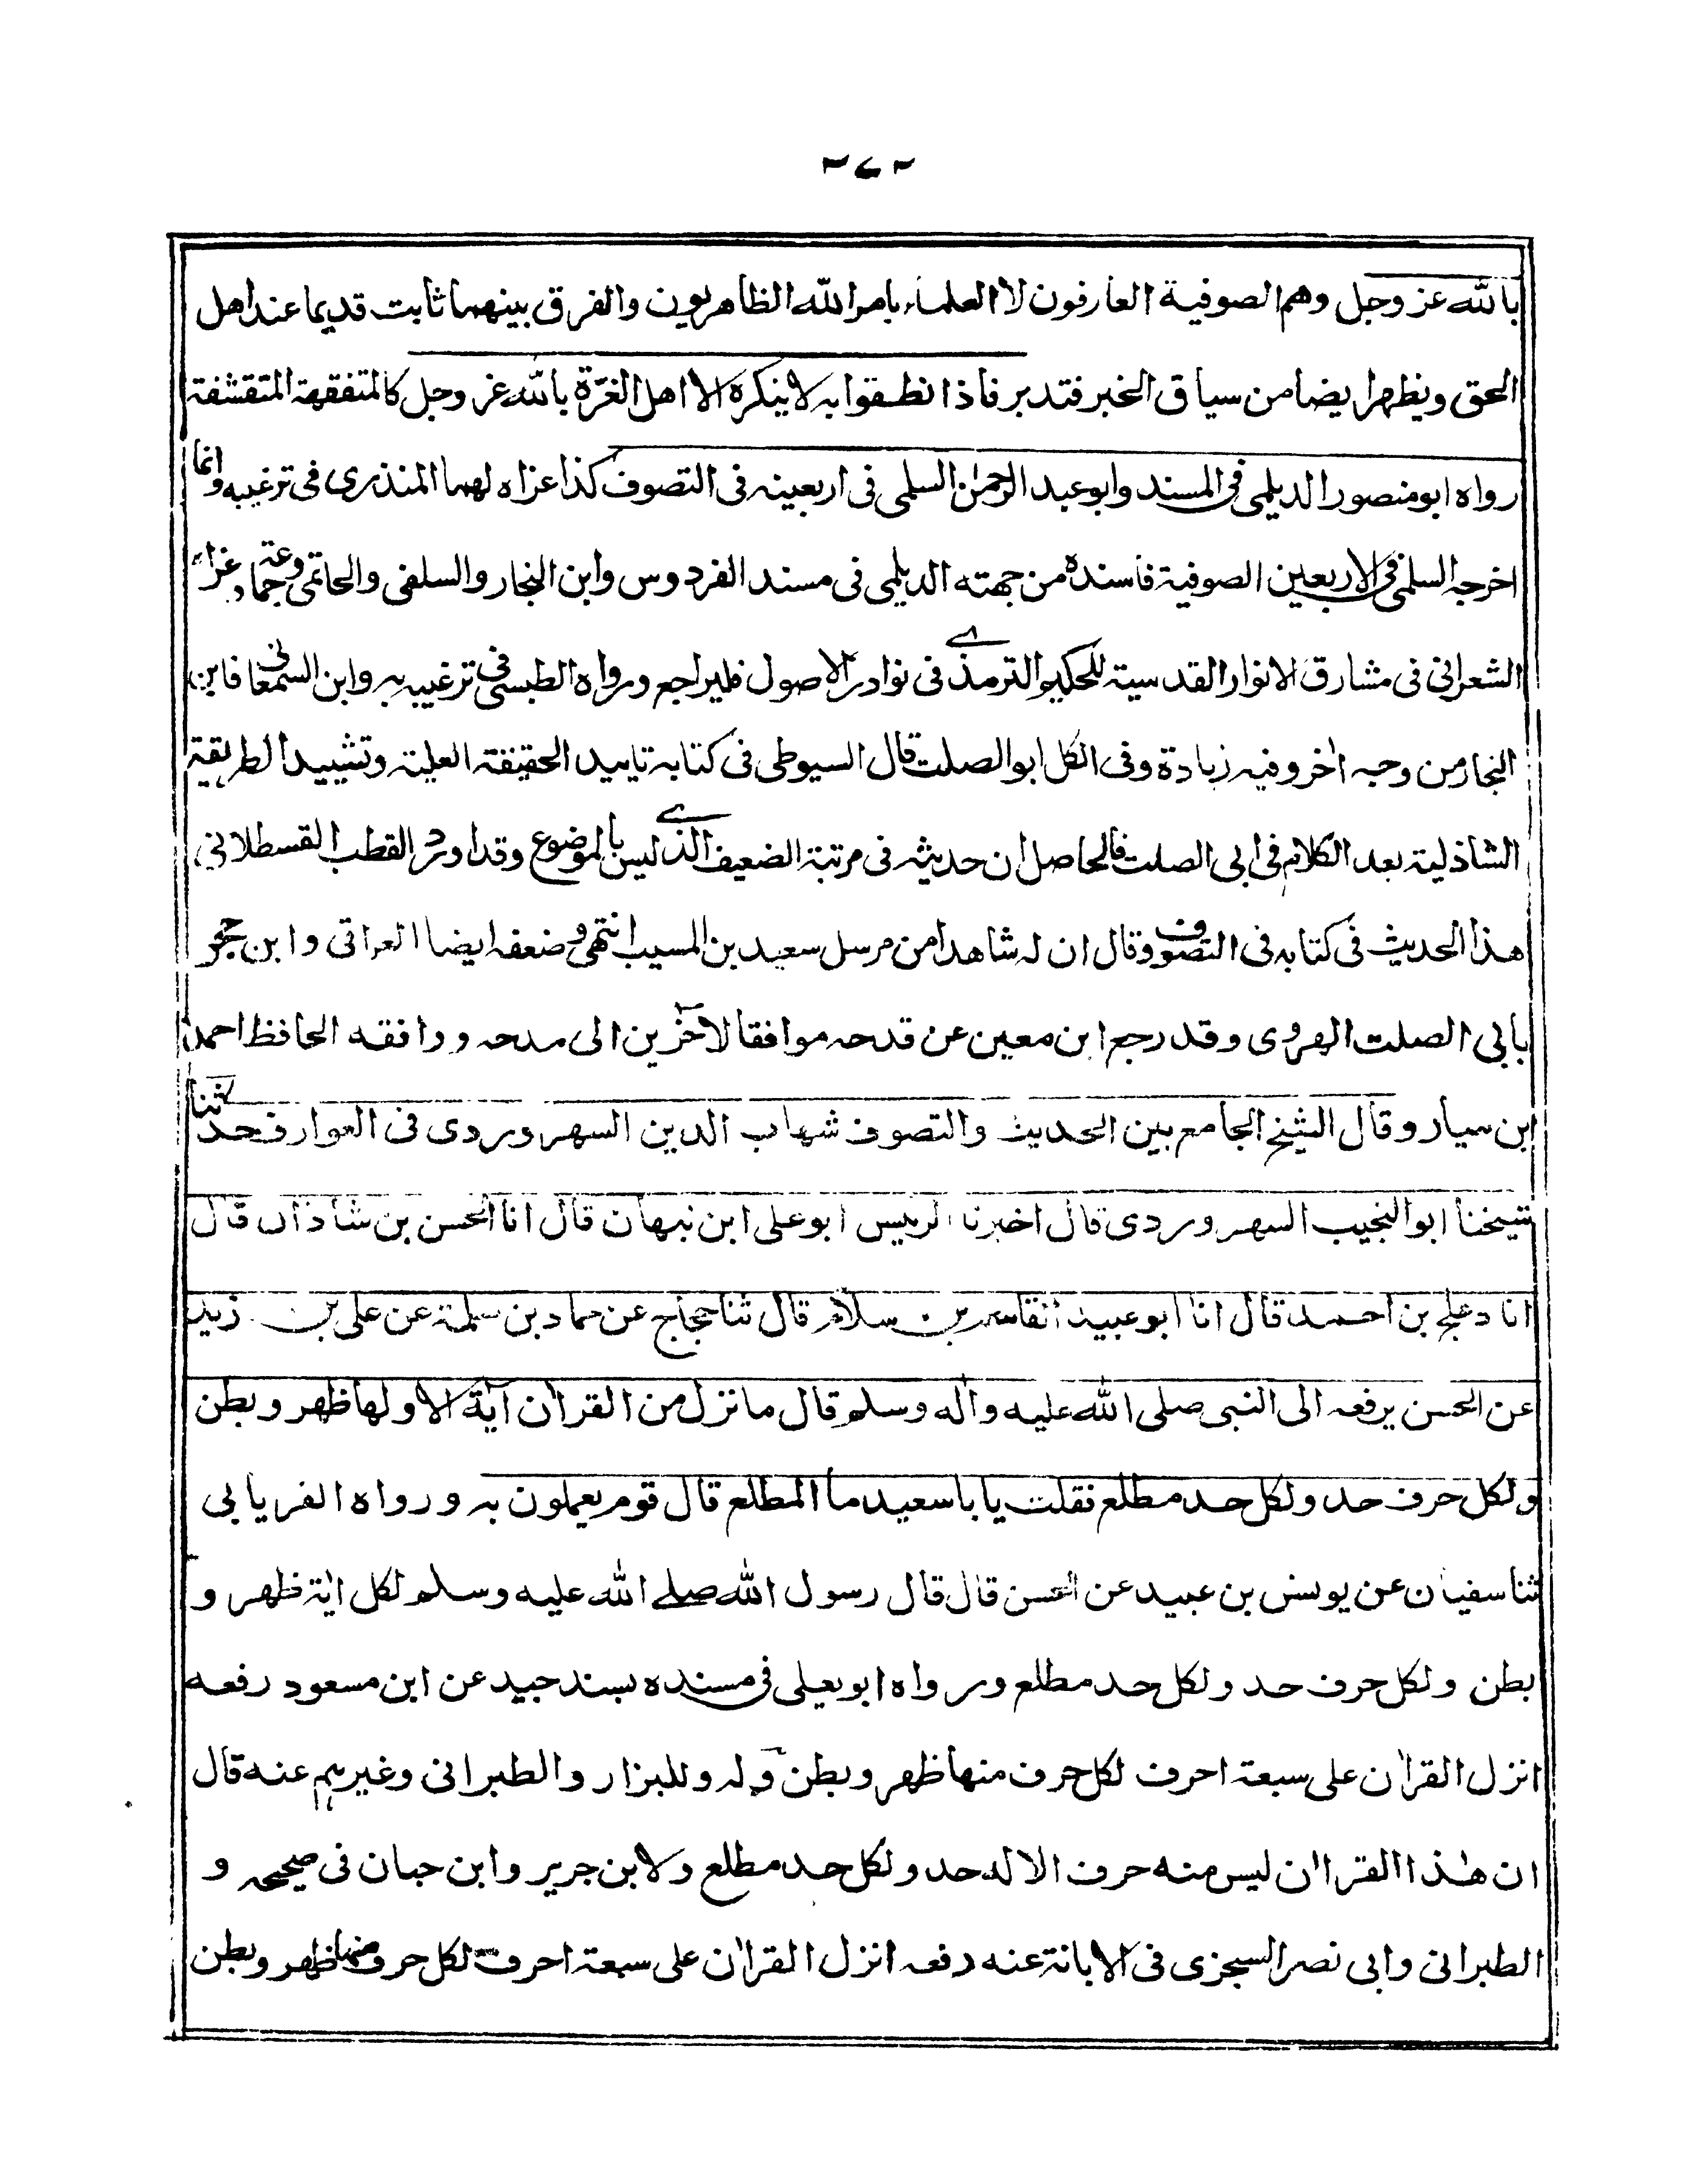 ٢٤٢
بالله عز وجل وهم الصوفية العارفون لا العلماء بامر الله الظاهريون والفرق بينهما ثابت قديما عند اهل
الحق ويظهر ايضا من سياق الخبر فتدبر فاذا نطقوا به لا ينكره الا اهل الغرّة بالله عز وجل كالمتفقهة المتقشفة
رواه ابو منصور الديلمى فى المسند وابو عبد الرحمٰن السلمى فى اربعينه فى التصوف كذا عزاه لهما المنذرى فى ترغيبه وانما
اخرجه السلمى فى الاربعين الصوفية فاسنده من جهته الديلمى فى مسند الفردوس وابن النجار والسلفى والحاتمى وعنه جماد عزاه
الشعرانى فى مشارق الانوار القدسية للحكيم الترمذى فى نوادر الاصول فليراجع ورواه الطبسى فى ترغيبه به وابن السمعانى فابن
النجار من وجه اٰخر وفيه زيادة وفى الكل ابو الصلت قال السيوطى فى كتابه تاييد الحقيقة العلية وتشييد الطريقة
الشاذلية بعد الكلام فى ابى الصلت فالحاصل ان حديثه فى مرتبة الضعيف الذى ليس بالموضوع وقد اورد القطب القسطلانى
هذا الحديث فى كتابه فى التصوف وقال ان له شاهدا من مرسل سعيد بن المسيب انتهى وضعفه ايضا العراقى وابن حجر
بابى الصلت الهروى وقد رجع ابن معين عن قدحه موافقا لاٰخرين الى مدحه ووافقه الحافظ احمد
ابن سيار وقال الشيخ الجامع بين الحديث والتصوف شهاب الدين السهروردى فى العوارف حدثنا
شيخنا ابو النجيب السهروردى قال اخبرنا الرئيس ابو على ابن نبهان قال انا الحسن بن شاذان قال
انا دعلج بن احمد قال انا ابو عبيد القاسم بن سلام قال ثنا حجاج عن حماد بن سلمة عن على بن زيد
عن الحسن يرفعه الى النبى صلى الله عليه واٰله وسلم قال ما نزل من القراٰن اٰية الا ولها ظهر وبطن
ولكل حرف حد ولكل حد مطلع فقلت يا با سعيد ما المطلع قال قوم يعملون به ورواه الفريابى
ثنا سفيان عن يونس بن عبيد عن الحسن قال قال رسول الله صلى الله عليه وسلم لكل اٰية ظهر و
بطن ولكل حرف حد ولكل حد مطلع ورواه ابو يعلى فى مسنده بسند جيد عن ابن مسعود رفعه
انزل القراٰن على سبعة احرف لكل حرف منها ظهر وبطن وله وللبزار والطبرانى وغيرهم عنه قال
ان هٰذا القراٰن ليس منه حرف الا له حد ولكل حد مطلع ولابن جرير وابن حبان فى صحيحه و
الطبرانى وابى نصر السجزى فى الابانة عنه رفعه انزل القراٰن على سبعة احرف لكل حرف منها ظهر وبطن